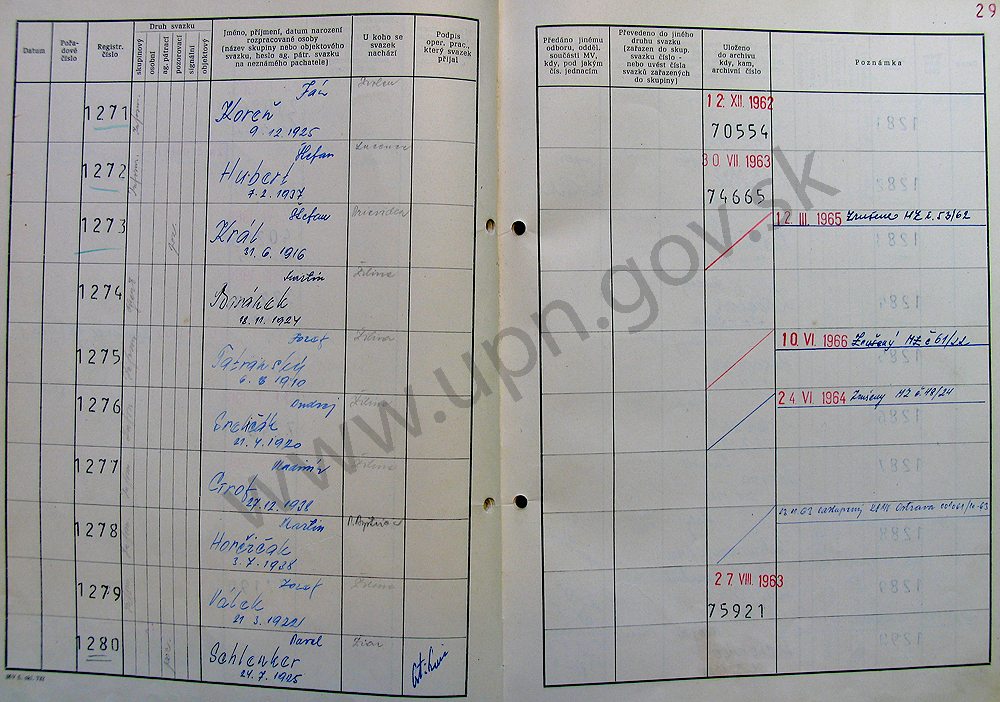 29
Datum
Pořa-
dové
číslo
Registr.
číslo
Druh svazku
skupinový
osobní
ag. pátrací
pozorovací
signální
objektový
Jméno, příjmení, datum narození
rozpracované osoby
(název skupiny nebo objektového
svazku, heslo ag. pátr. svazku
na neznámého pachatele)
U koho se
svazek
nachází
Podpis
oper. prac.,
který svazek
přijal
Předáno jinému
odboru, odděl.
součásti MV,
kdy, pod jakým
čís. jednacím
Převedeno do jiného
druhu svazku
(zařazen do skup.
svazku číslo -
nebo uvést čísla
svazků zařazených
do skupiny)
Uloženo
do archivu
kdy, kam,
archivní číslo
Poznámka
1271
Ján
Koreň
9.12.1925
Zvolen
12. XII. 1962
70554
1272
Štefan
Hubert
7.2.1937
Lucenec
30 VII. 1963
74665
1273
Štefan
Král
31.6.1916
Prievidza
12. III. 1965 Zrušeno MZ č. 53/62
1274
Martin
18.11.1924
Žilina
1275
Jozef
Tatranský
6.8.1910
Žilina
10. VI. 1966 Zrušený MZ č 61/22
1276
Ondrej
21.4.1920
Žilina
24. VI. 1964 Zrušený MZ č. 48/24
1277
Vladimír
27.12.1938
Žilina
1278
Martin
Horčičák
3.7.1928
P. Bystrica
Ostrava
1279
Jozef
Válek
21.3.1922
Žilina
27. VIII. 1963
75921
1280
Pavel
Schlenker
24.7.1925
Žiar
www.upn.gov.sk